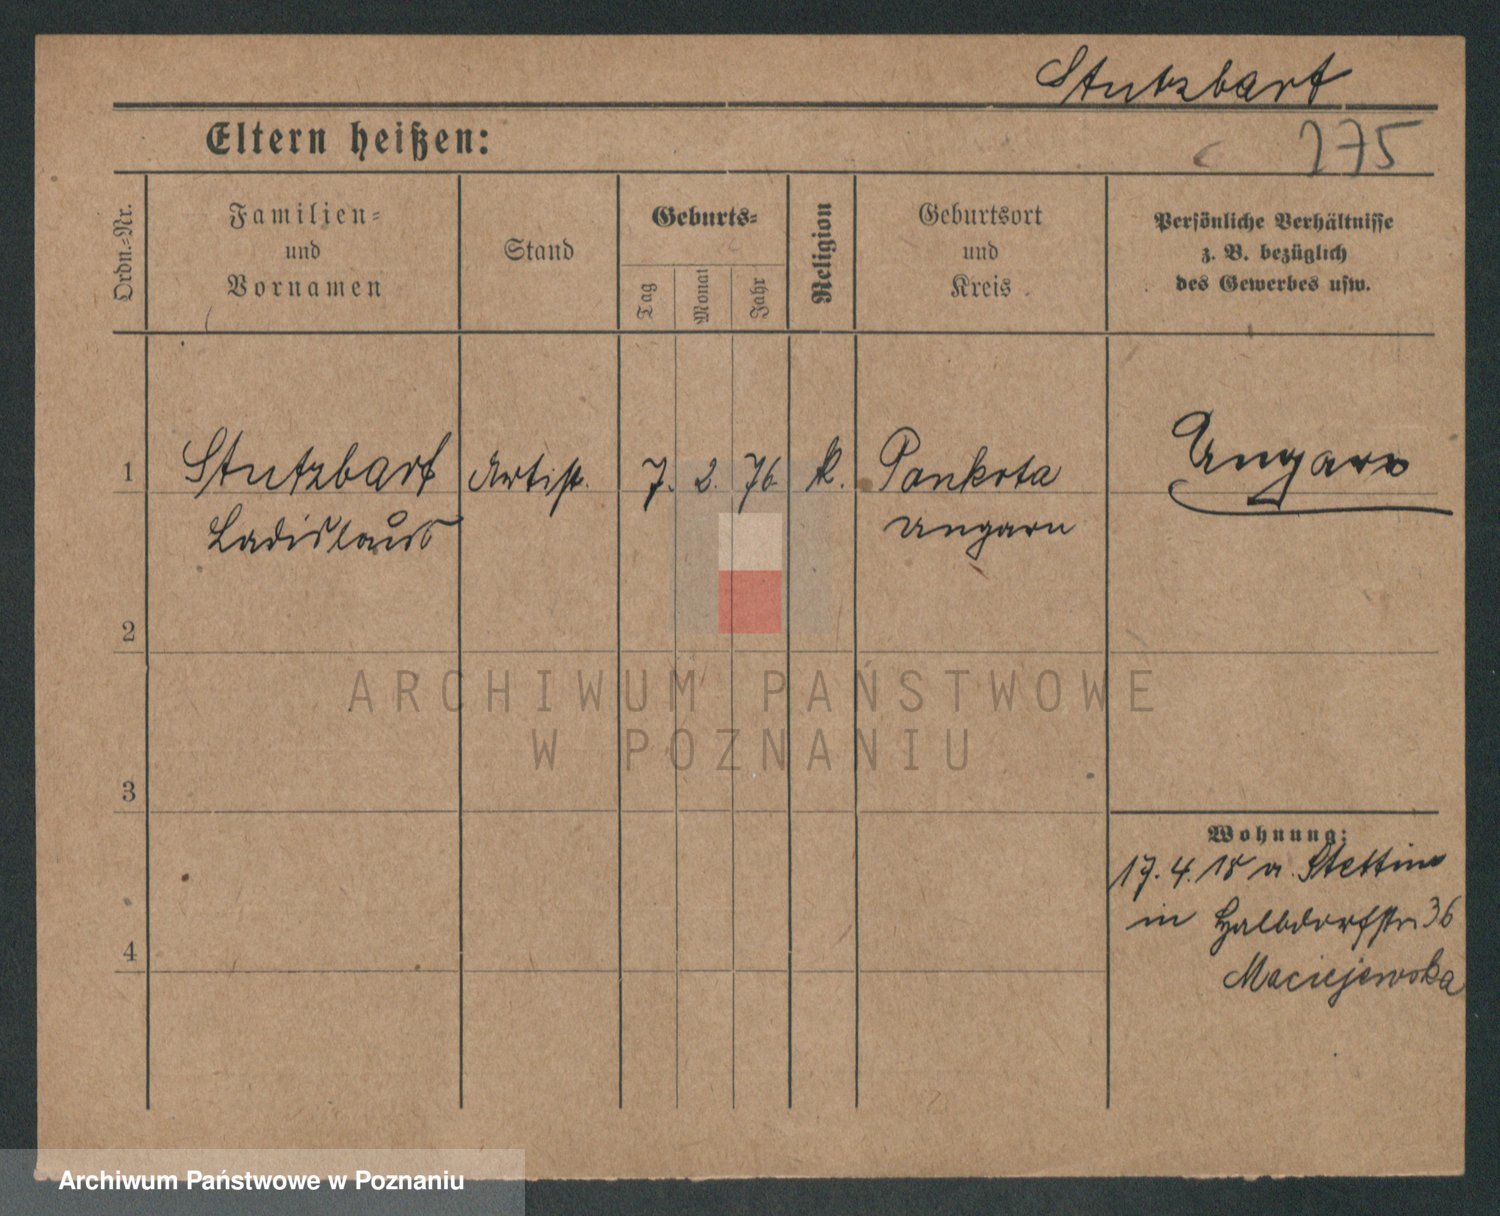 Stutzbart
Eltern heißen:
275
Ordn.=Nr.
Familien=
und
Vornamen
Stand
Geburts=
Tag
Monat
Jahr
Religion
Geburtsort
und
Kreis
Persönliche Verhältnisse
z. B. bezüglich
des Gewerbes usw.
1 Stutzbart Artist. 7. 2. 76 k. Pankota Ungarn
Ladislaus Ungarn
2
3
4
Wohnung:
17. 4. 18 a. Stettin
in Halbdorfstr. 36
Maciejewska
ARCHIWUM PAŃSTWOWE
W POZNANIU
Archiwum Państwowe w Poznaniu